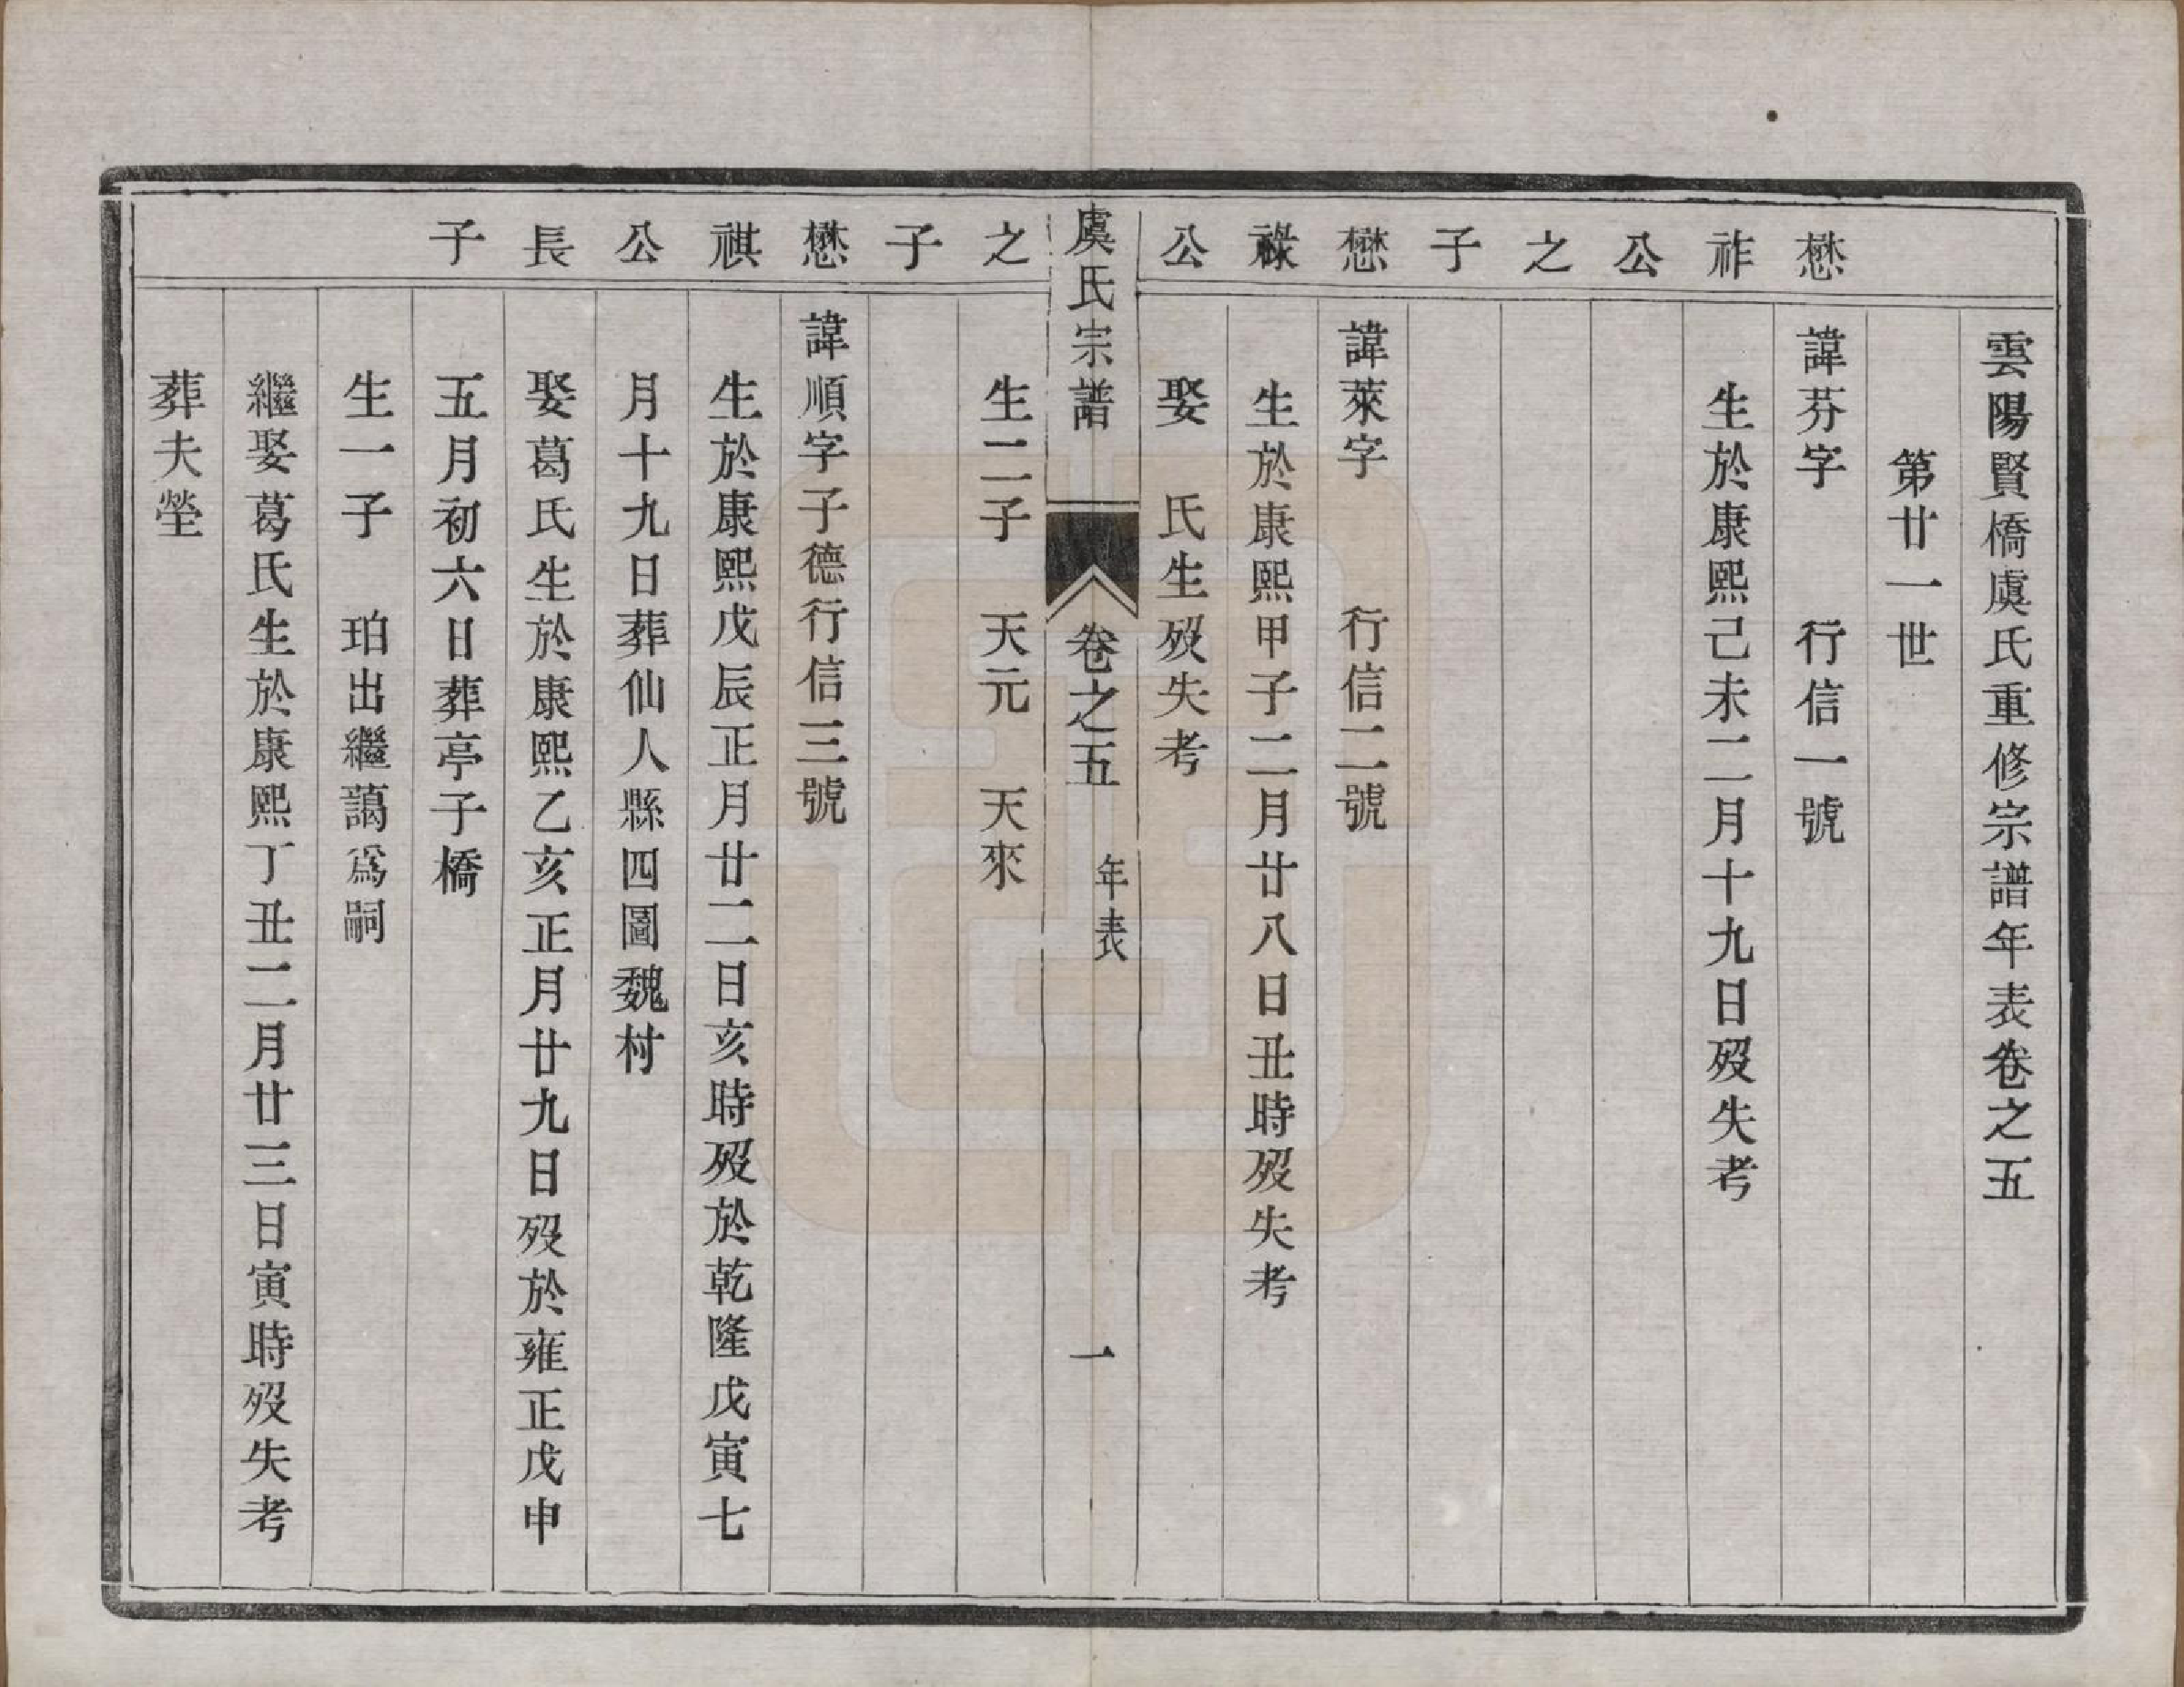 雲陽賢橋虞氏重修宗譜年表卷之五
第廿一世
懋祚公之子
諱芬字　行信一號
生於康熙己未二月十九日歿失考
懋祿公之子
諱萊字　行信二號
生於康熙甲子二月廿八日丑時歿失考
娶　氏生歿失考
虞氏宗譜　卷之五　年表　一
生二子　天元　天來
懋祺公長子
諱順字子德行信三號
生於康熙戊辰正月廿二日亥時歿於乾隆戊寅七
月十九日葬仙人縣四圖魏村
娶葛氏生於康熙乙亥正月廿九日歿於雍正戊申
五月初六日葬亭子橋
生一子　珀出繼藹爲嗣
繼娶葛氏生於康熙丁丑二月廿三日寅時歿失考
葬夫塋